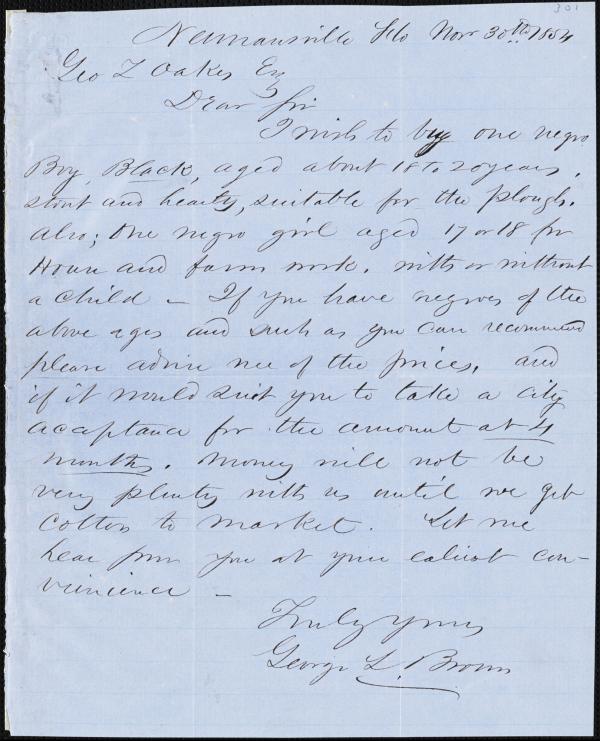 301
Newnansville Flo Nov 30th 1854
Geo Z Oakes Esq
Dear Sir
I wish to buy one negro
Boy, Black, aged about 18 to 20 years,
stout and hearty, suitable for the plough.
also; One negro girl aged 17 or 18 for
House and farm work. with or without
a child – If you have negroes of the
above ages and such as you can recommend
please advise me of the prices, and
if it would suit you to take a city
acceptance for the amount at 4
months. Money will not be
very plenty with us until we get
Cotton to market. Let me
hear from you at your earliest con-
venience –
Truly yours
George L. Brown